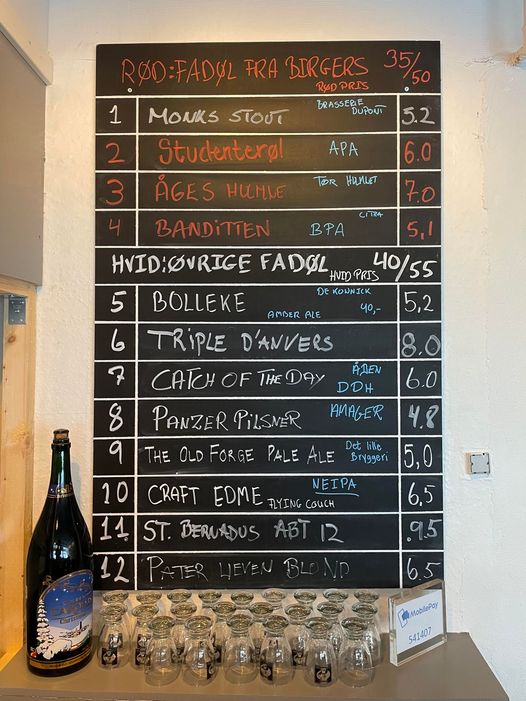 RØD:FADØL FRA BIRGERS 35/50
RØD PRIS
1 MONKS STOUT BRASSERIE DUPONT 5.2
2 Studenterøl APA 6.0
3 ÅGES HUMLE TØR HUMLET 7.0
4 BANDITTEN BPA CITRA 5,1
HVID:ØVRIGE FADØL HVID PRIS 40/55
5 BOLLEKE DE KONNICK AMBER ALE 40,- 5,2
6 TRIPLE D'ANVERS 8.0
7 CATCH OF THE DAY ÅBEN DDH 6.0
8 PANZER PILSNER AMAGER 4.8
9 THE OLD FORGE PALE ALE Det lille Bryggeri 5,0
10 CRAFT EDME NEIPA FLYING COUCH 6,5
11 ST. BERNADUS ABT 12 .9.5
12 PATER LIEVEN BLOND 6.5
MobilePay
541407